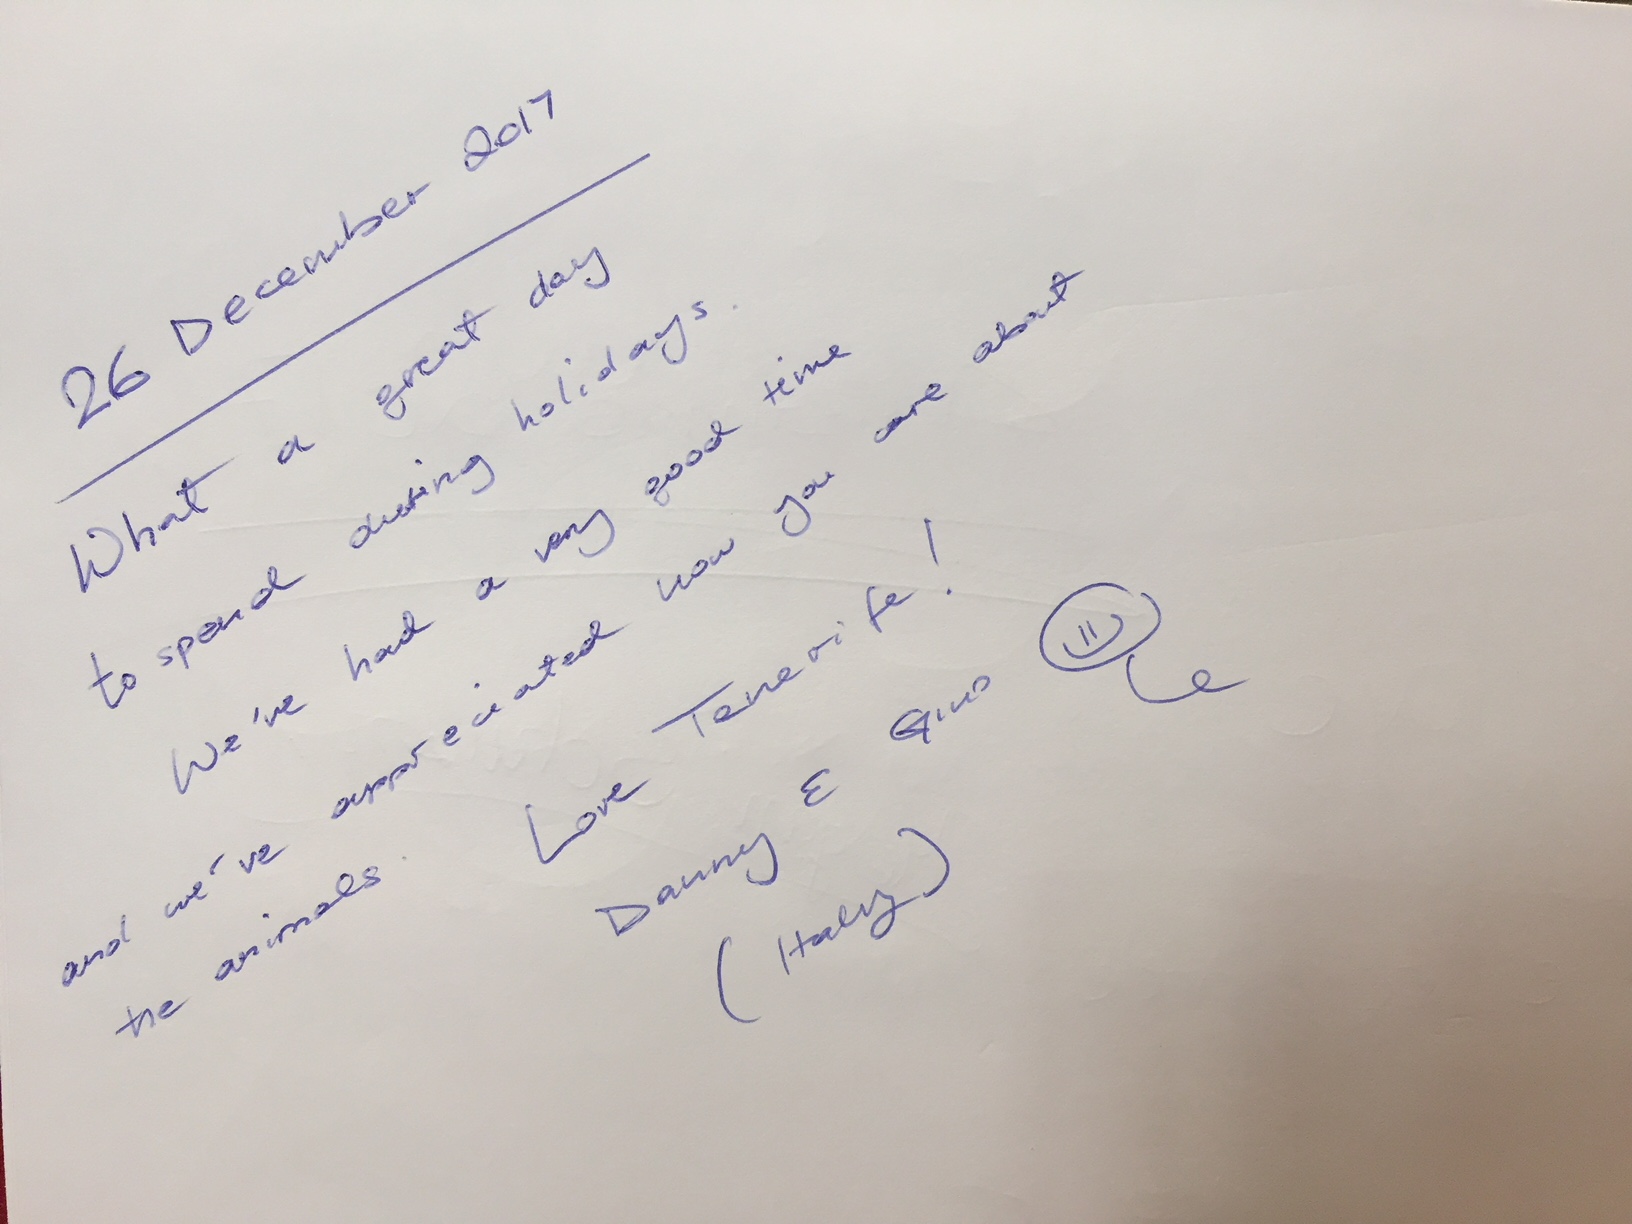 26 December 2017
What a great day
to spend during holidays.
We've had a very good time
and we've appreciated how you care about
the animals.
Love Tenerife!
Danny & Gino
(Italy)